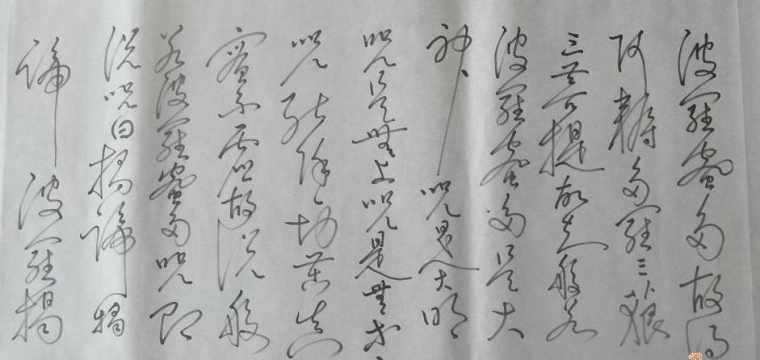 波羅蜜多故得
阿耨多羅三藐
三菩提故知般若
波羅蜜多是大
神咒是大明
咒是無上咒是無等
咒能除一切苦真
實不虛故說般
若波羅蜜多咒即
說咒曰揭諦揭
諦波羅揭